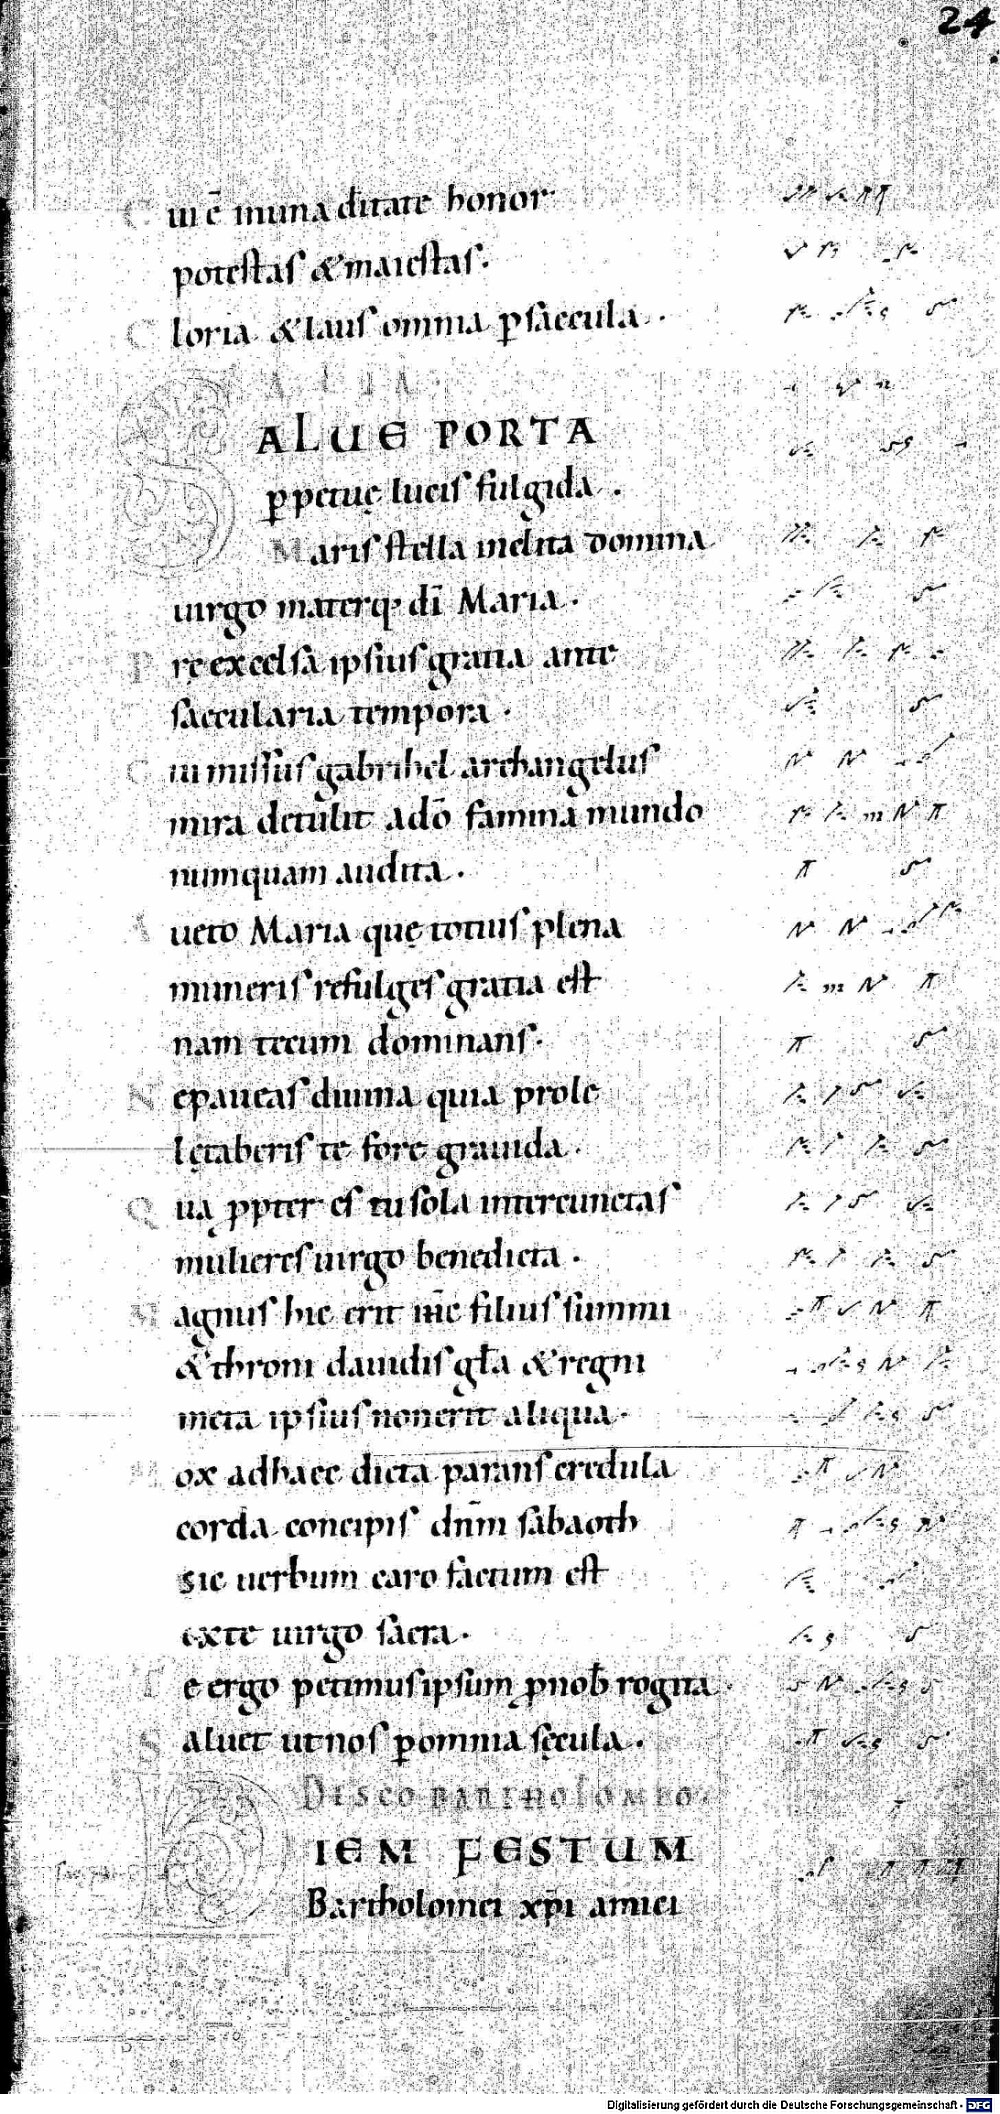 24
Cui ē inuna ditate honor
potestas & maiestas.
Gloria & laus omnia p saecula.
ALIA.
SALUE PORTA
ppetuę lucis fulgida.
Maris stella inclita domina
uirgo materq; dī Maria.
Pręexcelsa ipsius gratia ante
saecularia tempora.
Cui missus gabrihel archangelus
mira detulit adō famina mundo
numquam audita.
Aueto Maria quę totius plena
muneris refulges gratia est
nam tecum dominans.
Nepaueas diuina quia prole
lętaberis te fore grauida.
Quą ppter es tu sola inter cunctas
mulieres uirgo benedicta.
Magnus hic erit nc̄ filius summi
& throni dauidis gła & regni
meta ipsius non erit aliqua.
Mox ad haec dicta parans credula
corda concipis dn̄m sabaoth
sic uerbum caro factum est
exte uirgo sacra.
Te ergo petimus ipsum pnob rogita.
Saluet ut nos p omnia sęcula.
DE SCO BARTHOLOMEO.
DIEM FESTUM
Bartholomei xp̄i amici
Digitalisierung gefördert durch die Deutsche Forschungsgemeinschaft - DFG